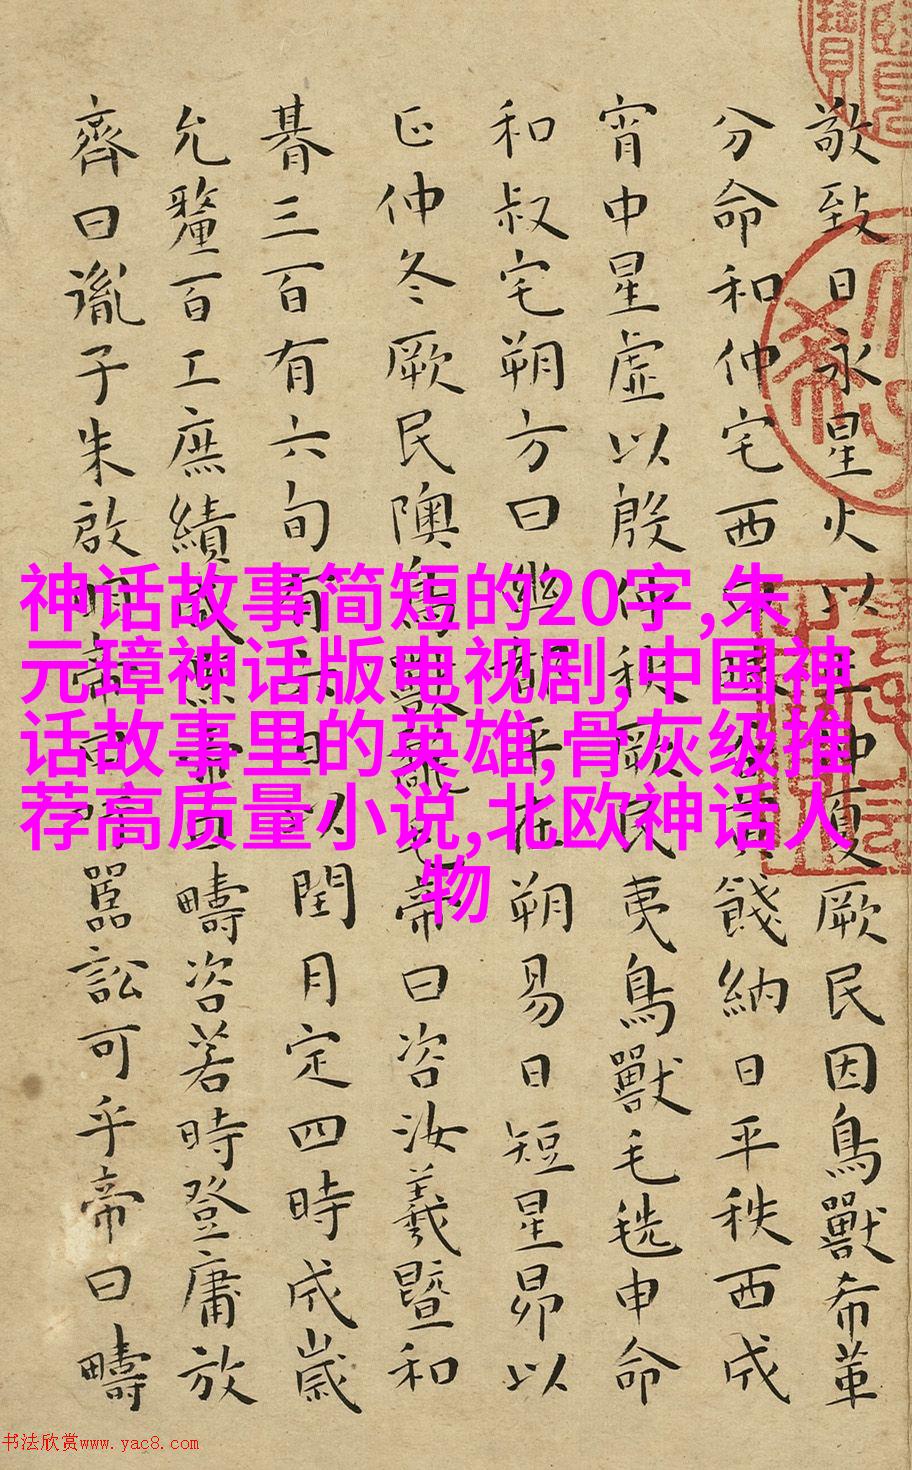 敬致日永星火以正仲夏厥民因鳥獸希革
分命和仲宅西曰昧谷寅餞納日平秩西成
宵中星虛以殷仲秋厥民夷鳥獸毛毨申命
和叔宅朔方曰幽都平在朔易日短星昴以
正仲冬厥民隩鳥獸氄毛帝曰咨汝羲暨和
朞三百有六旬有六日以閏月定四時成歲
允釐百工庶績咸熙帝曰疇咨若時登庸放
齊曰胤子朱啟明帝曰吁嚚訟可乎帝曰疇
神话故事简短的20字,朱
元璋神话版电视剧,中国神
话故事里的英雄,骨灰级推
荐高质量小说,北欧神话人
物
书法欣赏www.yac8.com